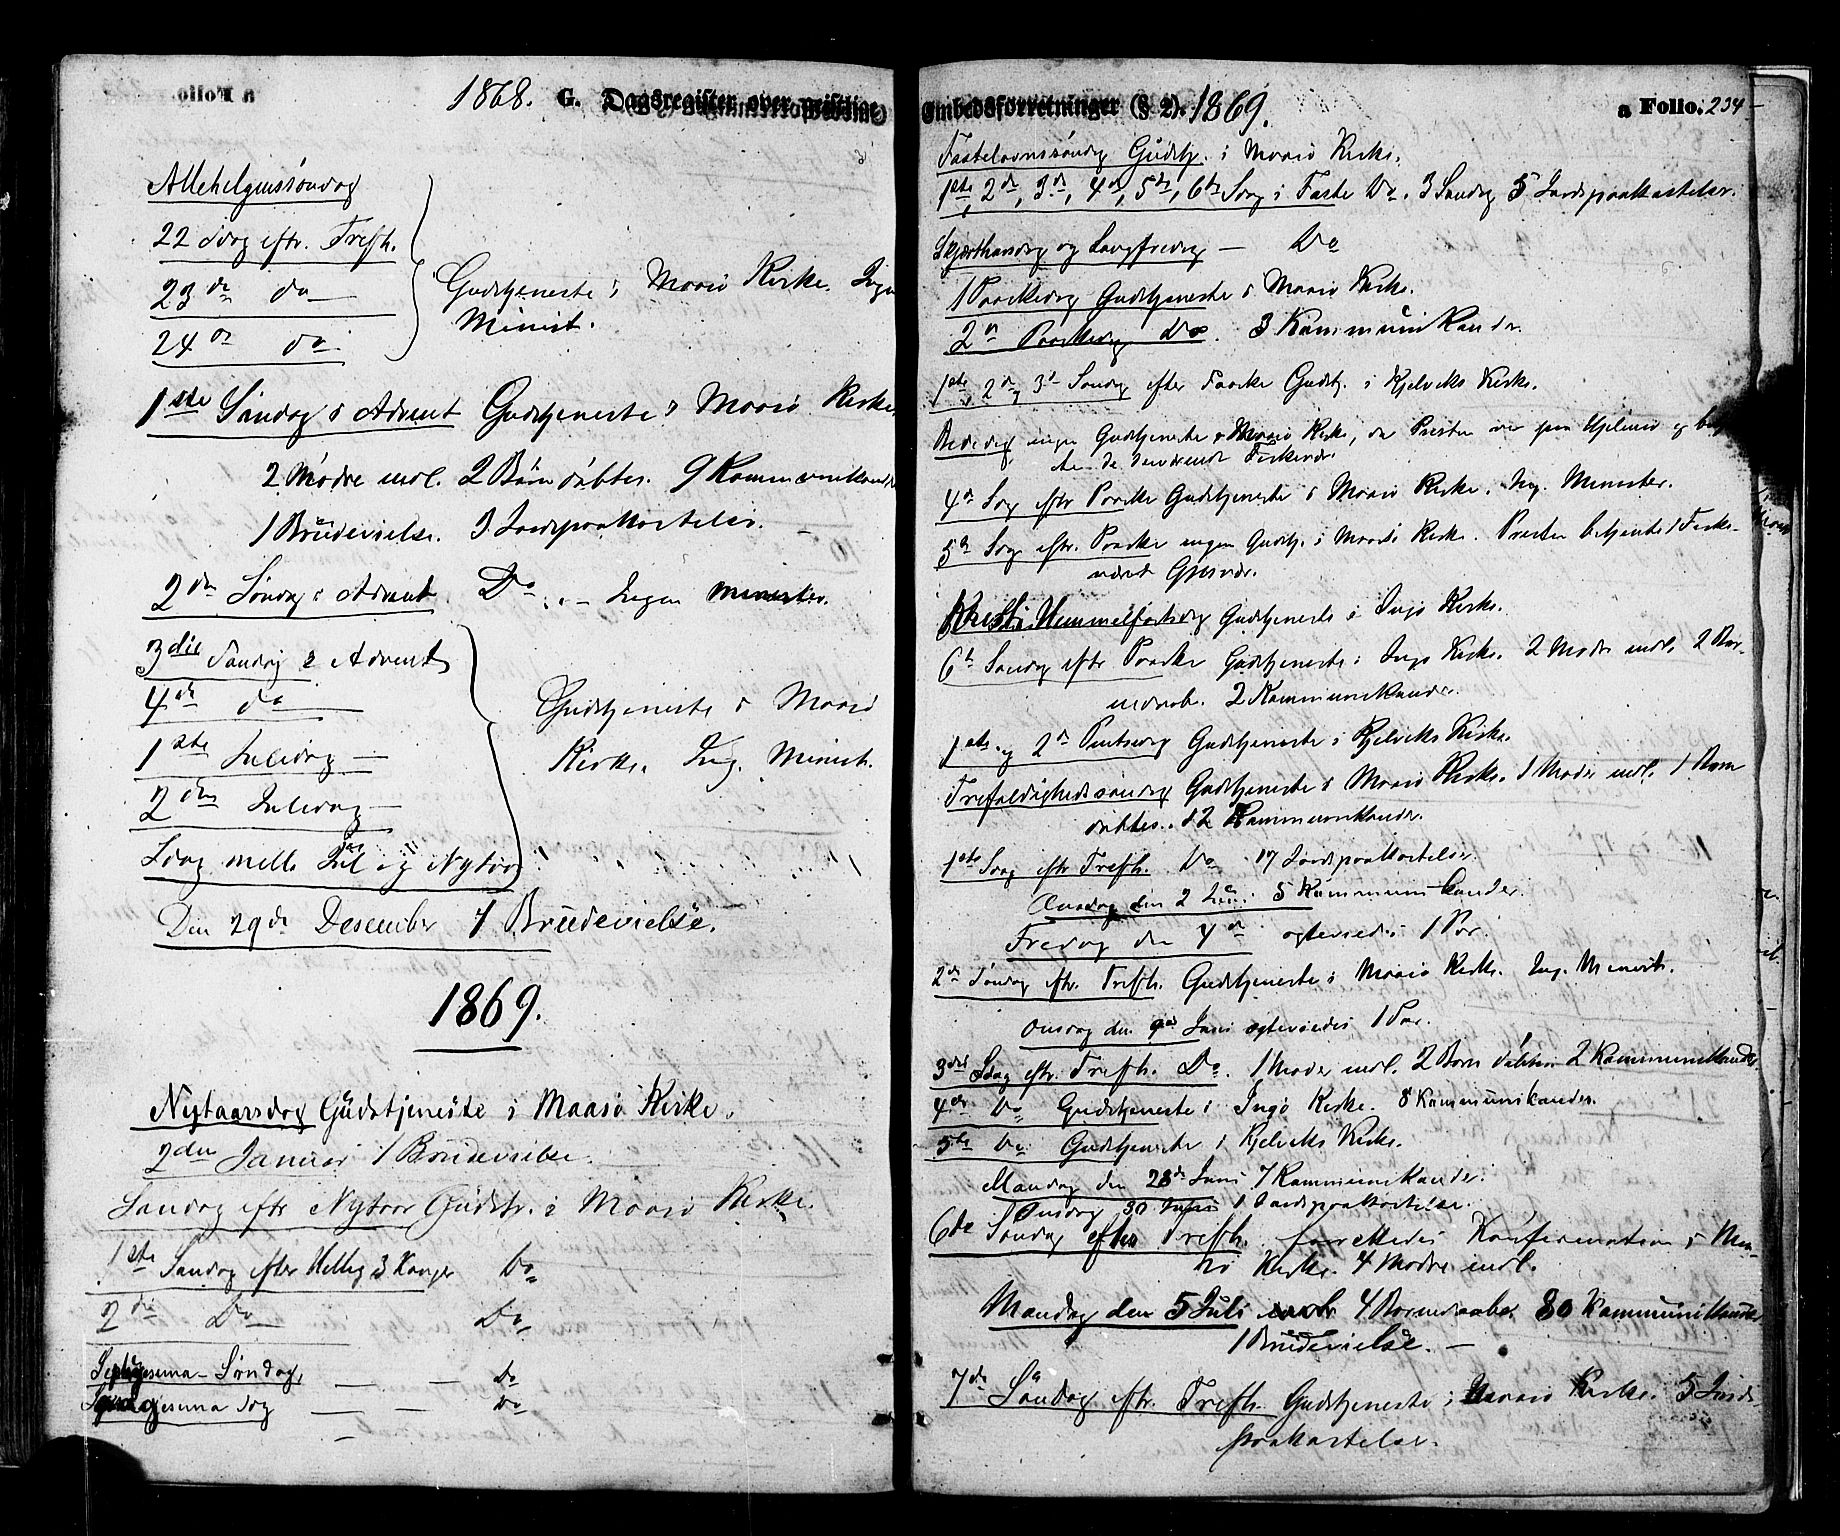 1868. G. Dagsregister over geistlige
Allehelgenssøndag
22 Sdag eftr. Trefh.
23 de do
24 de do
Gudstjeneste i Maasø Kirke. Ingen
Minist.
1ste Søndag i Advent Gudstjeneste i Maasø Kirke.
2 Mødre indl. 2 Børn døbtes. 9 Kommunikander
1 Brudevielse. 3 Jordpaakastelser.
2den Søndag i Advent Do. Ingen Minister.
3die Søndag i Advent
4de do
1ste Juledag
2den Juledag
Gudstjeneste i Maasø
Kirke. Ing. Minist.
Sdag mell. Jul og Nytaar
Den 29de Desember 1 Brudevielse.
1869.
Nytaarsdag Gudstjeneste i Maasø Kirke.
2den Januar 1 Brudevielse.
Søndag eftr Nytaar Gudstj. i Maasø Kirke.
1ste Søndag efter Hellig 3 Konger Do
2de Do Do
Septuagesima-Søndag, Do
Sexagesima Sdg Do
Embedsforretninger (§ 2). 1869. a Folio. 234
Fastelavnssøndag Gudstj. i Maasø Kirke.
1ste, 2de, 3de, 4de, 5te, 6te Sdag i Faste Do. 3 Søndag 5 Jordpaakastelser.
Skjærthorsdag og Langfredag — Do
1 Paaskedag Gudstjeneste i Maasø Kirke.
2n Paaskedag Do. 3 Kommunikander.
1ste, 2de, 3de Søndag efter Paaske Gudstj. i Kjelviks Kirke.
Bededag ingen Gudstjeneste i Maasø Kirke, da Presten var paa Hjelmsø og
de derværende Fiskevær.
4de Sdag eftr Paaske Gudstjeneste i Maasø Kirke. Ing. Minister.
5te Sdag eftr. Paaske ingen Gudstj. i Maasø Kirke. Presten betjente Fiske-
været Gjesvær.
Kristi Himmelfartsdag Gudstjeneste i Ingø Kirke.
6te Søndag eftr Paaske Gudstjeneste i Ingø Kirke. 2 Mødre indl. 2 Bar-
nedaabe. 2 Kommunikander.
1ste og 2den Pintsedag Gudstjeneste i Kjelviks Kirke.
Trefoldighedssøndag Gudstjeneste i Maasø Kirke. 1 Moder indl. 1 Barn
døbtes. 12 Kommunikander.
1ste Sdag eftr Trefh. Do 17 Jordpaakastelser.
Onsdag den 2 Juni 5 Kommunikander.
Fredag den 4de ægteviedes 1 Par.
2de Søndag eftr. Trefh. Gudstjeneste i Maasø Kirke. Ing. Minist.
Onsdag den 9de Juni ægteviedes 1 Par.
3die Sdag eftr. Trefh. Do. 1 Moder indl. 2 Børn døbtes 2 Kommunikander
4de Do Gudstjeneste i Ingø Kirke. 8 Kommunikander.
5te Do Gudstjeneste i Kjelviks Kirke.
Mandag den 28de Juni 7 Kommunikander.
Onsdag 30 Juni 1 Jordpaakastelse.
6te Søndag efter Trefh. forrettedes Konfirmation i Maa-
sø Kirke. 4 Mødre indl.
Mandag den 5 Juli 4 Barnedaabe. 80 Kommunikander
1 Brudevielse. —
7de Søndag eftr. Trefh. Gudstjeneste i Maasø Kirke. 5 Jords-
paakastelser.